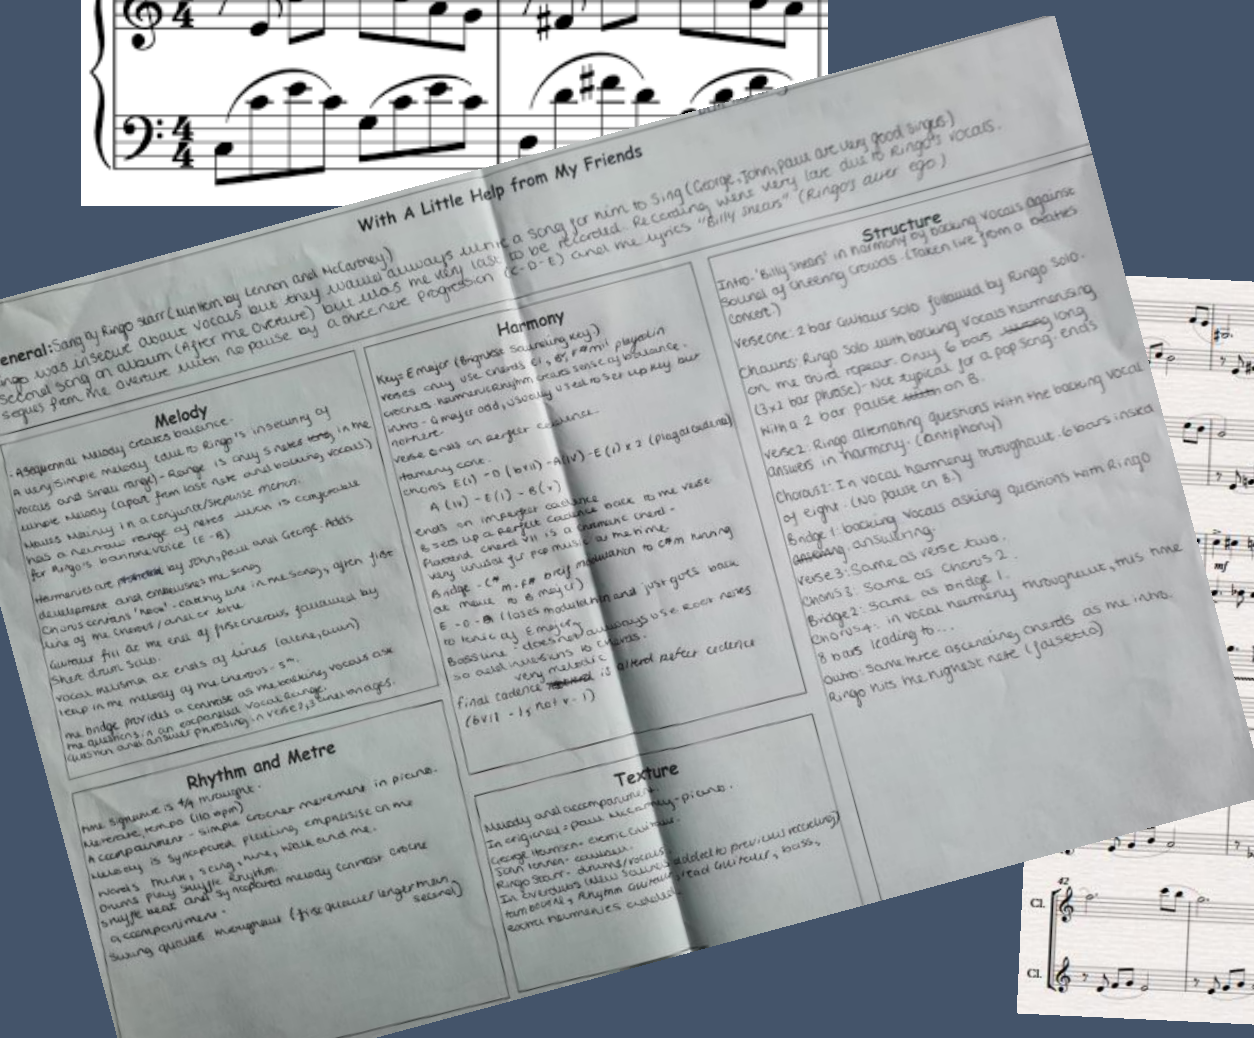 With A Little Help from My Friends
eneral: Sang by Ringo Starr (written by Lennon and McCartney)
ingo was insecure about vocals but they would always write a song for him to sing (George, John, Paul are very good singers)
Second song on album (After the overture) but was the very last to be recorded. Recording went very late due to Ringo's vocals.
segues from the overture with no pause by a three note progression (C-D-E) and the lyrics "Billy Shears" (Ringo's alter ego)
Melody
- A sequential melody creates balance.
A very simple melody (due to Ringo's insecurity of
vocals and small range) - Range is only 5 notes in the
whole melody (apart from last note and backing vocals)
Moves mainly in a conjunct/stepwise motion.
has a narrow range of notes which is comfortable
for Ringo's baritone voice (E-B)
Harmonies are by John, Paul and George. Adds
development and embellishes the song
Chorus contains 'hook' - catchy line in the song, often first
line of the chorus / and or title
Guitar fill at the end of first chorus followed by
short drum solo.
vocal melisma at ends of lines (alone, own)
leap in the melody of the chorus - 5th.
the bridge provides a contrast as the backing vocals ask
the questions in an expanded vocal range.
Question and answer phrasing in verse 2, 3 and bridges.
Harmony
Key = E major (Brightest sounding key)
verses only use chords E, B, F#mii played in
crochets harmonic rhythm creates sense of balance.
intro - G major odd, usually used to set up key but
not here.
verse ends on perfect cadence.
Harmony cont.
Chorus E(I) - D (bVII) - A(IV) - E (I) x 2 (plagal cadence)
A (IV) - E(I) - B(V)
ends on imperfect cadence
B sets up a perfect cadence back to the verse
Flattened chord VII is a chromatic chord -
very unusual for pop music at the time.
Bridge - C#m - F# brief modulation to C#m
E - D - A (loses modulation and just goes back
to tonic of E major)
Bassline - does not always use root notes
so adds inversions to chords.
very melodic
final cadence is altered perfect cadence
(bVII - I, not V - I)
Structure
Intro - 'Billy Shears' in harmony by backing vocals against
sound of cheering crowds. (Taken live from a Beatles
concert.)
verse one: 2 bar Guitar solo followed by Ringo solo.
Chorus: Ringo solo with backing vocals harmonising
on the third repeat. Only 6 bars long
(3x2 bar phrase) - Not typical for a pop song. ends
with a 2 bar pause on B.
verse 2: Ringo alternating questions with the backing vocal
answers in harmony. (antiphony)
Chorus 2: In vocal harmony throughout. 6 bars instead
of eight. (No pause on B.)
Bridge 1: backing vocals asking questions with Ringo
answering.
verse 3: Same as verse two.
Chorus 3: Same as Chorus 2.
Bridge 2: same as bridge 1.
Chorus 4: in vocal harmony throughout, this time
8 bars leading to...
Outro: same three ascending chords as the intro.
Ringo hits the highest note (falsetto)
Rhythm and Metre
time signature is 4/4 throughout.
Moderate tempo (110 bpm)
Accompaniment - simple crochet movement in piano.
Melody is syncopated, emphasise on the
words think, song, tune, walk and me.
Drums play shuffle rhythm.
shuffle beat and syncopated melody contrast crochet
accompaniment.
Swung quavers throughout (first quaver longer than
second)
Texture
Melody and accompaniment.
In original - Paul McCartney - piano.
George Harrison - electric Guitar.
John Lennon - cowbell.
Ringo Starr - drums/vocals
In overdubs (new sounds added to previous recording)
tambourine, Rhythm Guitar, lead Guitar, bass,
extra harmonies added.
42
Cl.
Cl.
mf